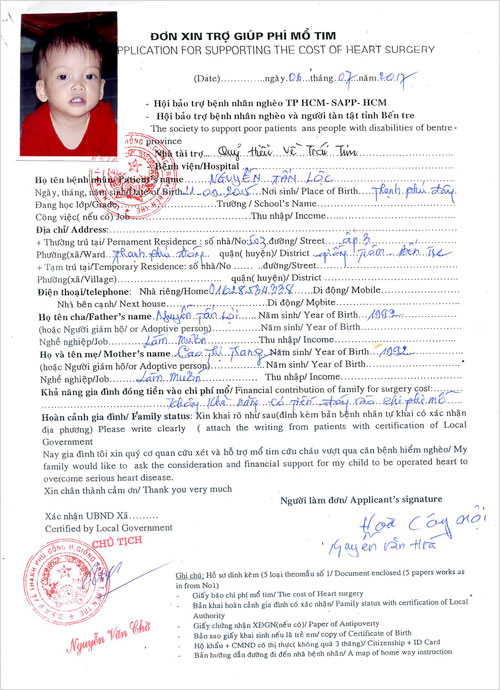 ĐƠN XIN TRỢ GIÚP PHÍ MỔ TIM
APPLICATION FOR SUPPORTING THE COST OF HEART SURGERY
(Date)……………ngày 06 tháng 07 năm 2017
- Hội bảo trợ bệnh nhân nghèo TP HCM- SAPP- HCM
- Hội bảo trợ bệnh nhân nghèo và người tàn tật tỉnh Bến tre
The society to support poor patients ans people with disabilities of bentre province
Nhà tài trợ Quỹ Hiểu Về Trái Tim
Bệnh viện/Hospital
Họ tên bệnh nhân/ Patient's name NGUYỄN TẤN LỘC
Ngày, tháng, năm sinh/Date of Birth 21-09-2015 Nơi sinh/ Place of Birth Thạnh phú đông
Đang học lớp/Grade Trường / School's Name
Công việc( nếu có) Job Thu nhập / Income
Địa chỉ/ Address:
+ Thường trú tại/ Permament Residence : số nhà/No 503 đường/ Street ấp 3
Phường(xã)/Ward Thạnh phú đông quận( huyện)/ District giồng Trôm Bến Tre
+ Tạm trú tại/Temporary Residence: số nhà/No đường/Street
Phường(xã)/Village) quận( huyện)/ District
Điện thoại/telephone: Nhà riêng/Home 01628534338 Di động/ Mobile
Nhà bên cạnh/ Next house Di động/ Mobite
Họ tên cha/Father's name Nguyễn Tấn Lợi Năm sinh/ Year of Birth 1992
(hoặc Người giám hộ/ or Adoptive person) Năm sinh/ Year of Birth
Nghề nghiệp/Job Làm Mướn Thu nhập/ Income
Họ và tên mẹ/ Mother's name Cao Thị Trang Năm sinh/ Year of Birth 1992
(hoặc Người giám hộ/or Adoptive person) Năm sinh/ Year of Birth
Nghề nghiệp/Job Làm Mướn Thu nhập/ Income
Khả năng gia đình đóng tiền vào chi phí mổ/ Financial contribution of family for surgery cost:
Không khả năng có tiền đóng vào chi phí mổ
Hoàn cảnh gia đình/ Family status: Xin khai rõ như sau(đính kèm bản bệnh nhân tự khai có xác nhận
địa phương) Please write clearly ( attach the writing from patients with certification of Local
Government
Nay gia đình tôi xin quý cơ quan cứu xét và hỗ trợ mổ tim cứu cháu vượt qua căn bệnh hiểm nghèo/ My
family would like to ask the consideration and financial support for my child to be operated heart to
overcome serious heart disease.
Xin chân thành cảm ơn/ Thank you very much
Người làm đơn/ Applicant's signature
Xác nhận UBND Xã
Certified by Local Government
CHỦ TỊCH
Nguyễn Văn Hoá
Nguyễn Văn Chữ
Ghi chú: Hồ sơ đính kèm (5 loại theomẫu số 1/ Document enclosed (5 papers works as
in from No1)
- Giấy báo chi phí mổ tim/ The cost of Heart surgery
- Bản khai hoàn cảnh gia đình có xác nhận/ Family status with certification of Local
Authority
- Giấy chứng nhận XĐGN(nếu có)/ Paper of Antipoverty
- Bảo sao giấy khai sinh nếu là trẻ em/ copy of Certificate of Birth
- Hộ khẩu + CMND có thị thực( không quá 3 tháng)/ Citizenship + ID Card
- Bản hướng dẫn đường đi đến nhà bệnh nhân/ A map of home way instruction